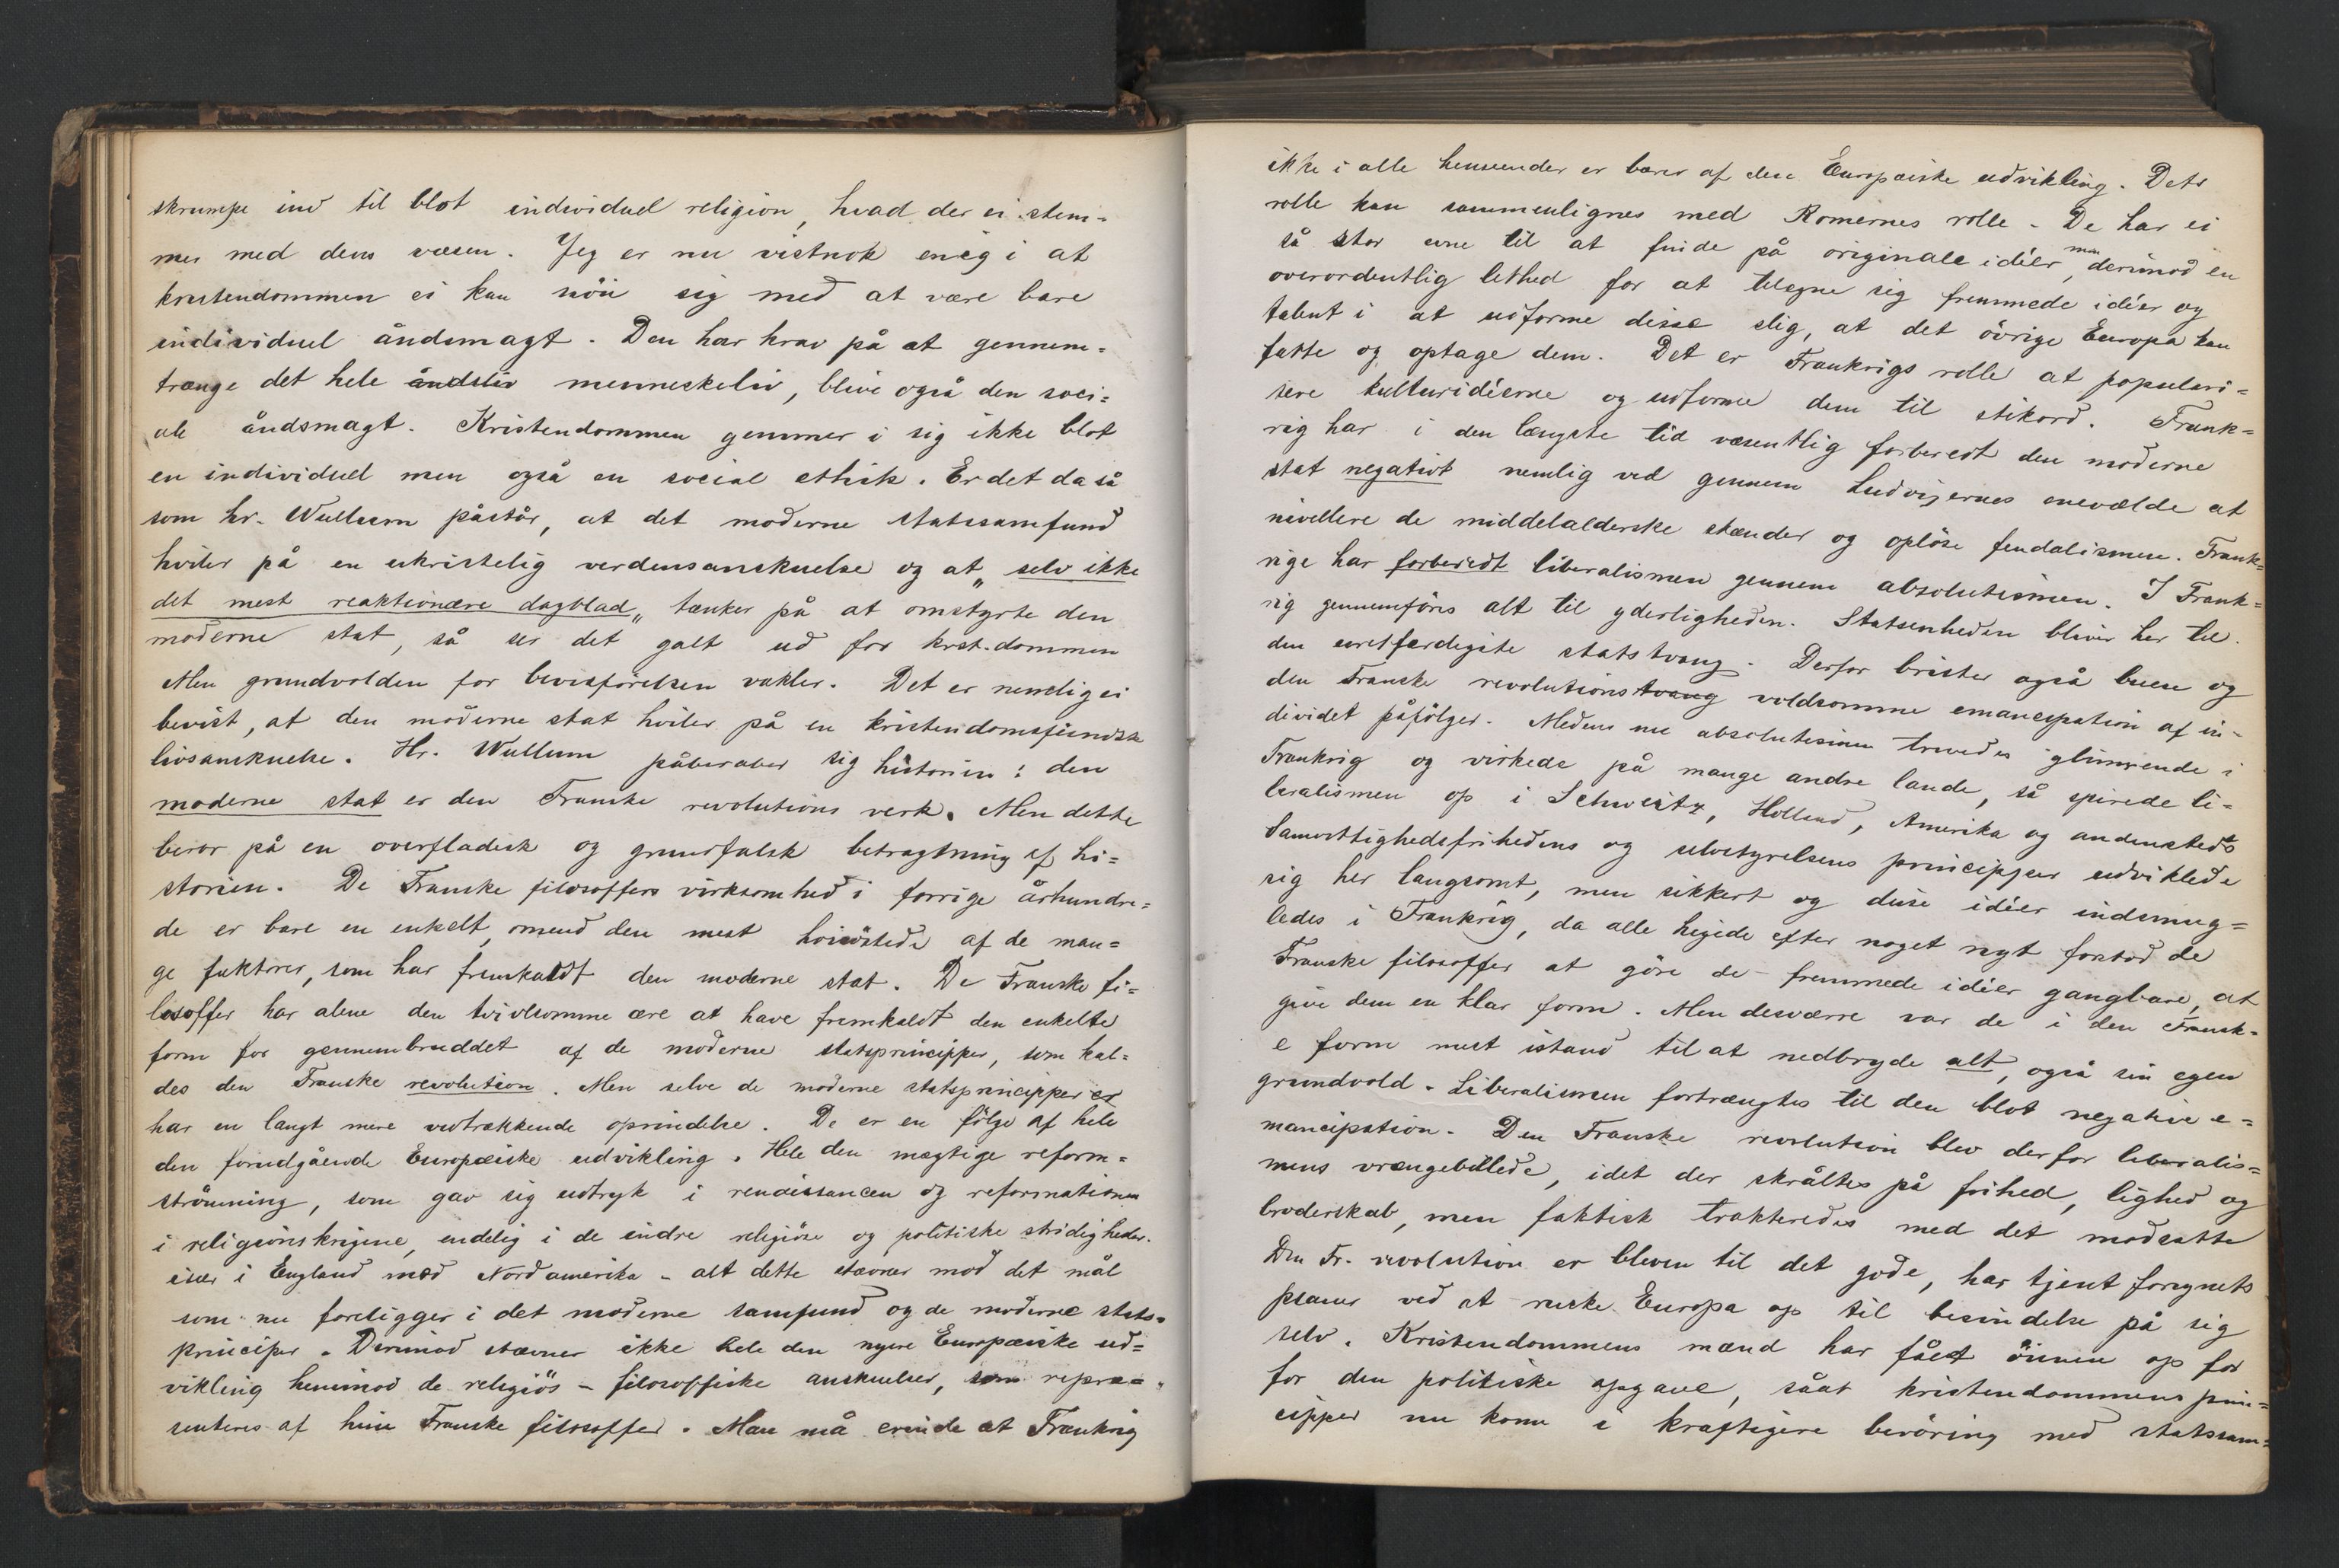 skrumpe ind til blot individuel religion, hvad der ei stem=
mer med dens væsen. Jeg er nu vistnok enig i at
kristendommen ei kan nöie sig med at være bare
individuel åndsmagt. Den har krav på at gennem=
trænge det hele åndsliv menneskeliv, blive også den soci=
ale åndsmagt. Kristendommen gemmer i sig ikke blot
en individuel men også en social ethik. Er det da så
som hr. Wullum påstår, at det moderne statssamfund
hviler på en ukristelig verdensanskuelse og at „selv ikke
det mest reaktionære dagblad„ tænker på at omstyrte den
moderne stat, så ser det galt ud for krst.dommen
Men grundvolden for bevisförelsen vakler. Det er nemlig ei
bevist, at den moderne stat hviler på en kristendomsfiendsk
livsanskuelse. Hr. Wullum påberaber sig historien: den
moderne stat er den Franske revolutions verk. Men dette
beror på en overfladisk og grundfalsk betragtning af hi=
storien. De Franske filosoffers virksomhed i forrige århundre=
de er bare en enkelt, omend den mest höiröstede af de man=
ge faktorer, som har fremkaldt den moderne stat. De Franske fi=
losoffer har alene den tvivlsomme ære at have fremkaldt den enkelte
form for gennembruddet af de moderne statsprincipper, som kal=
des den Franske revolution. Men selve de moderne statsprincipper er
har en langt mere vidtrækkende oprindelse. De er en fölge af hele
den forudgående Europæiske udvikling. Hele den mægtige reform=
strömning, som gav sig udtryk i renaissancen og reformationen
i religionskrigene, endelig i de indre religiöse og politiske stridigheder.
især i England med Nordamerika - alt dette stævner mod det mål
som nu foreligger i det moderne samfund og de moderne stats=
principer. Derimod stævner ikke hele den nyere Europæiske ud=
vikling henimod de religiös-filosoffiske anskuelser, som repræ=
senteres af hine Franske filosoffer. Man må erindre at Frankrig
ikke i alle henseender er bærer af den Europæiske udvikling. Dets
rolle kan sammenlignes med Romernes rolle. De har ei
så stor evne til at finde på originale idéer, men derimod en
overordentlig lethed for at tilegne sig fremmede idéer og
talent i at udforme disse slig, at det övrige Europa kan
fatte og optage dem. Det er Frankrigs rolle at populari=
sere kulturidéerne og udforme dem til stikord. Frank=
rig har i den længste tid væsentlig forberedt den moderne
stat negativt nemlig ved gennem Ludvigernes enevælde at
nivellere de middelalderske stænder og oplöse feudalismen. Frank=
rige har forberedt liberalismen gennem absolutismen. I Frank=
rig gennemföres alt til yderligheden. Statsenheden bliver her til
den uretfærdigste statstvang. Derfor brister også buen og
den Franske revolutionstvang voldsomme emancipation af in-
dividet påfölger. Medens nu absolutismen trivedes glimrende i
Frankrig og virkede på mange andre lande, så spirede li=
beralismen op i Schweitz, Holland, Amerika og andensteds
Samvittighedsfrihedens og selvstyrelsens principper udviklede
sig her langsomt, men sikkert og disse idéer indsmug=
ledes i Frankrig, da alle higede efter noget nyt forstod de
Franske filosoffer at göre de fremmede idéer gangbare, at
give dem en klar form. Men desværre var de i den Fransk=
e form mest istand til at nedbryde alt, også sin egen
grundvold. Liberalismen fortrængtes til den blot negative e=
mancipation. Den Franske revolution blev derfor liberalis=
mens vrængebillede, idet der skråltes på frihed, lighed og
broderskab, men faktisk trakteredes med det modsatte
Den Fr. revolution er bleven til det gode, har tjent forsynets
planer ved at ruske Europa op til besindelse på sig
selv. Kristendommens mænd har fået öinene op for
for den politiske opgave, såat kristendommens prin=
cipper nu kom i kraftigere beröring med statssam=